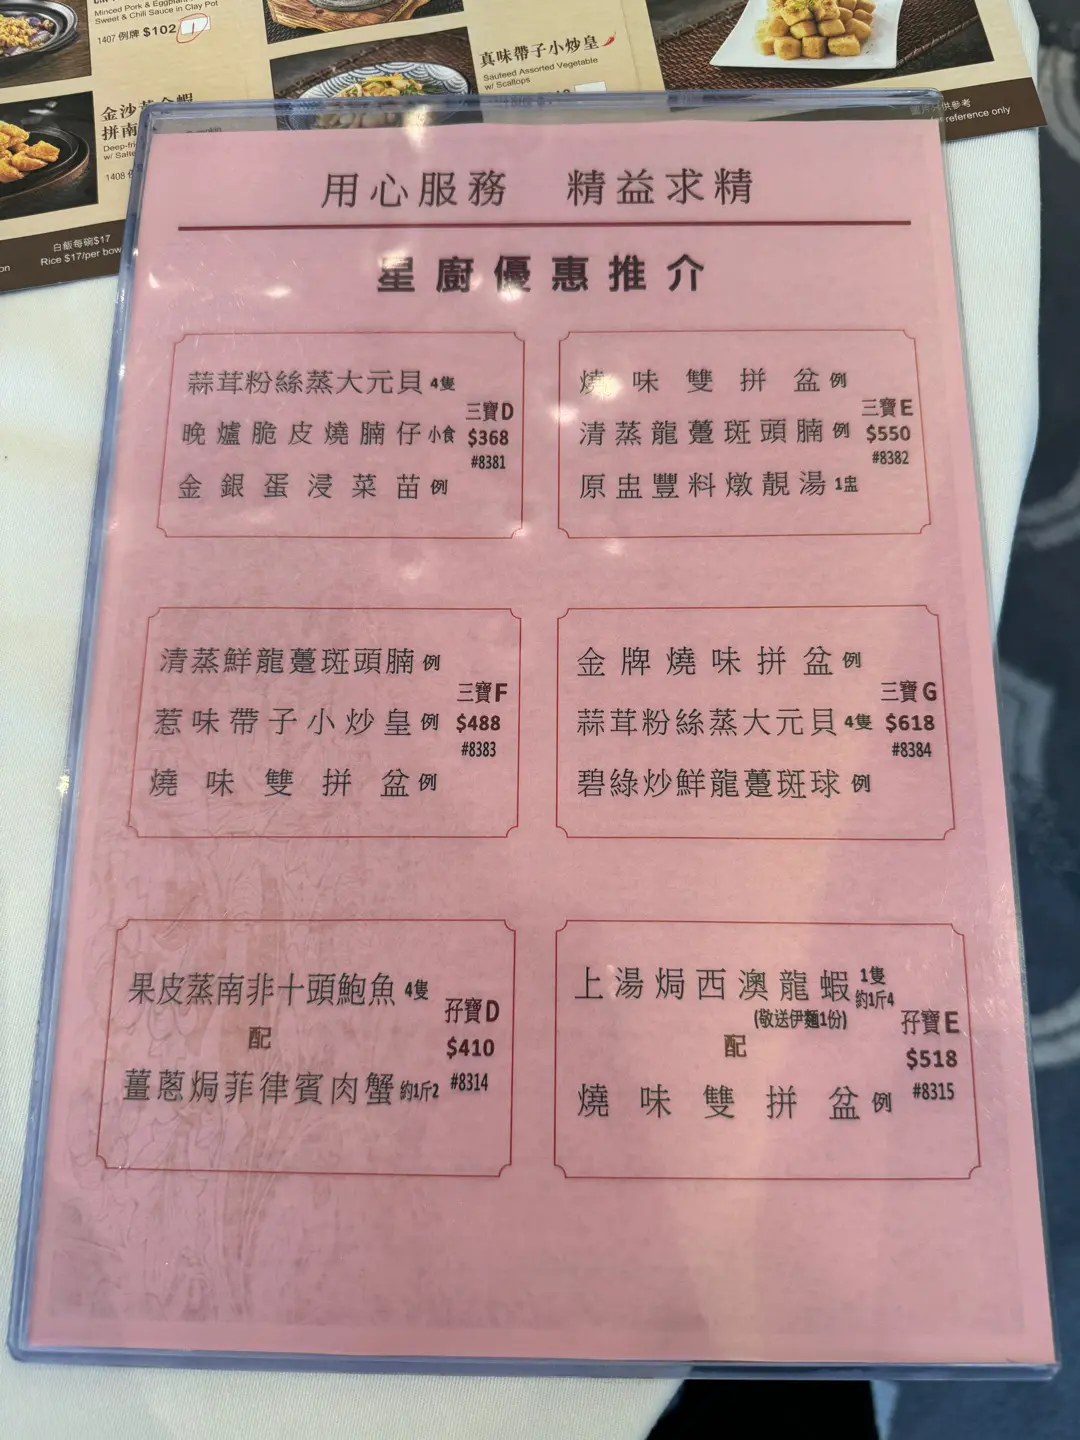 Minced Pork & Eggplant
Sweet & Chili Sauce in Clay Pot
1407 例牌 $102
真味帶子小炒皇
Sauteed Assorted Vegetable
w/ Scallops
金沙
拼南
1408
白飯每碗$17
Rice $17/per bow
供參考
reference only
用心服務 精益求精
星廚優惠推介
蒜茸粉絲蒸大元貝 4隻
晚爐脆皮燒腩仔 小食
金銀蛋浸菜苗 例
三寶D
$368
#8381
燒味雙拼盆 例
清蒸龍躉斑頭腩 例
原盅豐料燉靚湯 1盅
三寶E
$550
#8382
清蒸鮮龍躉斑頭腩 例
惹味帶子小炒皇 例
燒味雙拼盆 例
三寶F
$488
#8383
金牌燒味拼盆 例
蒜茸粉絲蒸大元貝 4隻
碧綠炒鮮龍躉斑球 例
三寶G
$618
#8384
果皮蒸南非十頭鮑魚 4隻
配
薑蔥焗菲律賓肉蟹 約1斤2
孖寶D
$410
#8314
上湯焗西澳龍蝦 1隻 約1斤4
(敬送伊麵1份)
配
燒味雙拼盆 例
孖寶E
$518
#8315